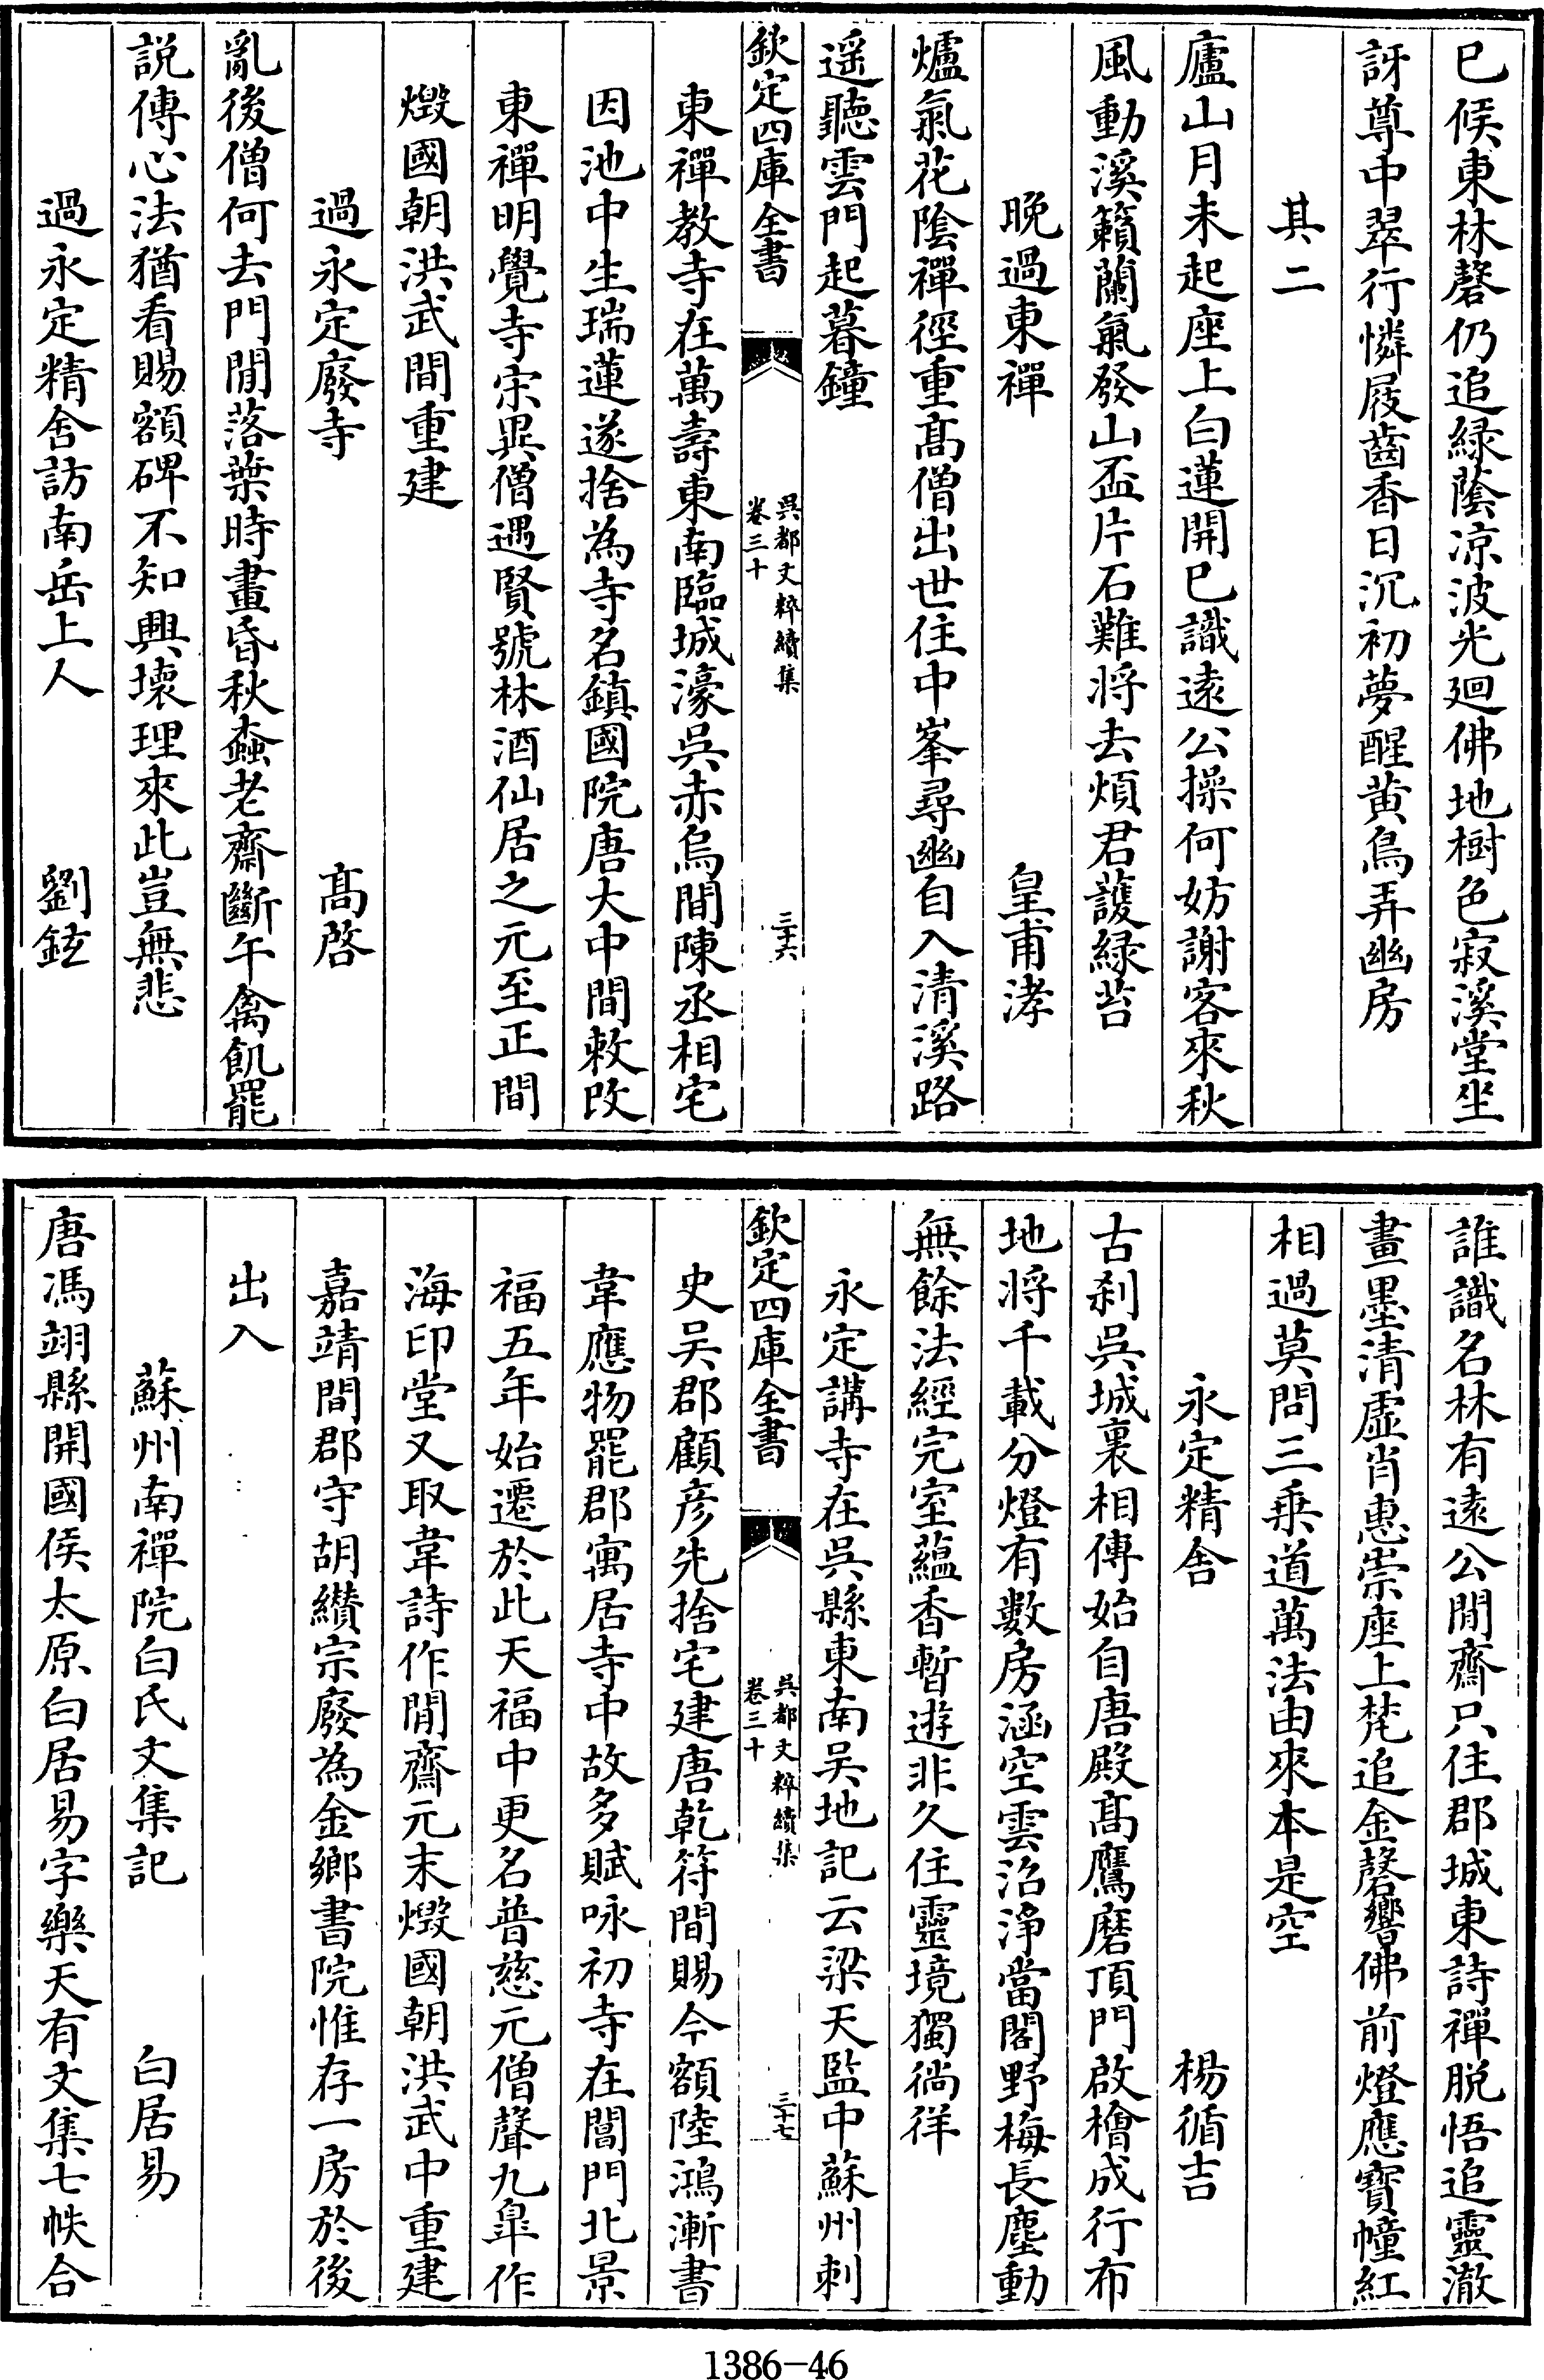 已候東林磬仍追緑蔭凉波光廻佛地樹色寂溪堂坐
訝尊中翠行憐屐齒香日沉初夢醒黄鳥弄幽房
其二
廬山月未起座上白蓮開已識逺公操何妨謝客來秋
風動溪籟蘭氣發山盃片石難将去煩君䕶緑苔
晩過東禪 皇甫涍
爐氣花陰禪徑重髙僧出世住中峯尋幽自入清溪路
遥聽雲門起暮鐘
欽定四庫全書 吳都文粹續集 卷三十 三十六
東禪教寺在萬壽東南臨城濠吳赤烏間陳丞相宅
因池中生瑞蓮遂捨為寺名鎮國院唐大中間敕改
東禪明覺寺宋異僧遇賢號林酒仙居之元至正間
燬國朝洪武間重建
過永定廢寺 髙啓
亂後僧何去門閒落葉時畫昏秋蝱老齋斷午禽飢罷
説傳心法猶看賜額碑不知興壊理來此豈無悲
過永定精舍訪南岳上人 劉鉉
誰識名林有逺公閒齋只住郡城東詩禪脱悟追靈澈
畫墨清虛肖惠崇座上梵追金磬響佛前燈應寳幢紅
相過莫問三乗道萬法由來本是空
永定精舍 楊循吉
古刹吳城裏相傳始自唐殿髙鷹磨頂門啟檜成行布
地将千載分燈有數房涵空雲沿浄當閣野梅長塵動
無餘法經完室蘊香暫遊非久住靈境獨徜徉
永定講寺在吳縣東南吳地記云梁天監中蘇州刺
欽定四庫全書 吳都文粹續集 卷三十 三十七
史吳郡顧彦先捨宅建唐乾符間賜今額陸鴻漸書
韋應物罷郡寓居寺中故多賦咏初寺在閶門北景
福五年始遷於此天福中更名普慈元僧聲九臯作
海印堂又取韋詩作閒齋元末燬國朝洪武中重建
嘉靖間郡守胡纘宗廢為金鄉書院惟存一房於後
出入
蘇州南禪院白氏文集記 白居易
唐馮翊縣開國侯太原白居易字樂天有文集七帙合
1386-46